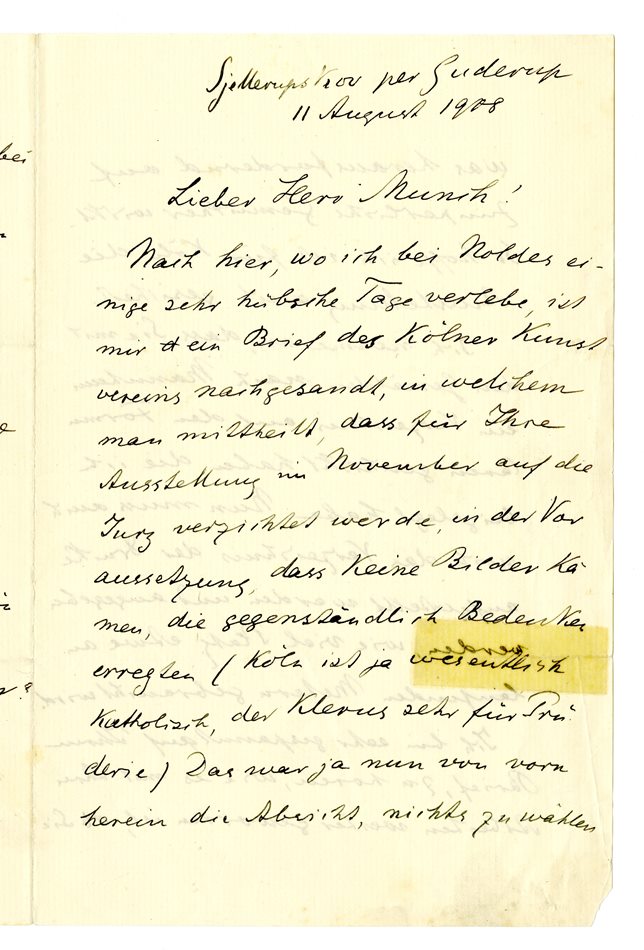 Sjellerupskov per Guderup
11 August 1908
Lieber Herr Munch!
Nach hier, wo ich bei Noldes ei-
nige sehr hübsche Tage verlebe, ist
mir ein Brief des Kölner Kunst
vereins nachgesandt, in welchem
man mittheilt, dass für Ihre
Ausstellung im November auf die
Jury verzichtet werde, in der Vor
aussetzung, dass keine Bilder kä-
men, die gegenständlich Bedenken
erregten (Köln ist ja wesentlich
katholisch, der Klerus sehr für Prü-
derie) Das war ja nun von vorn
herein die Absicht, nichts zu wählen